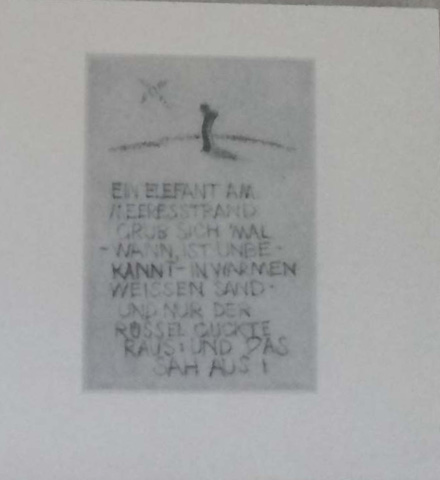 EIN ELEFANT AM
MEERESSTRAND
GRUB SICH MAL
- WANN, IST UNBE -
KANNT - IN WARMEN
WEISSEN SAND -
UND NUR DER
RÜSSEL GUCKTE
RAUS: UND DAS
SAH AUS!